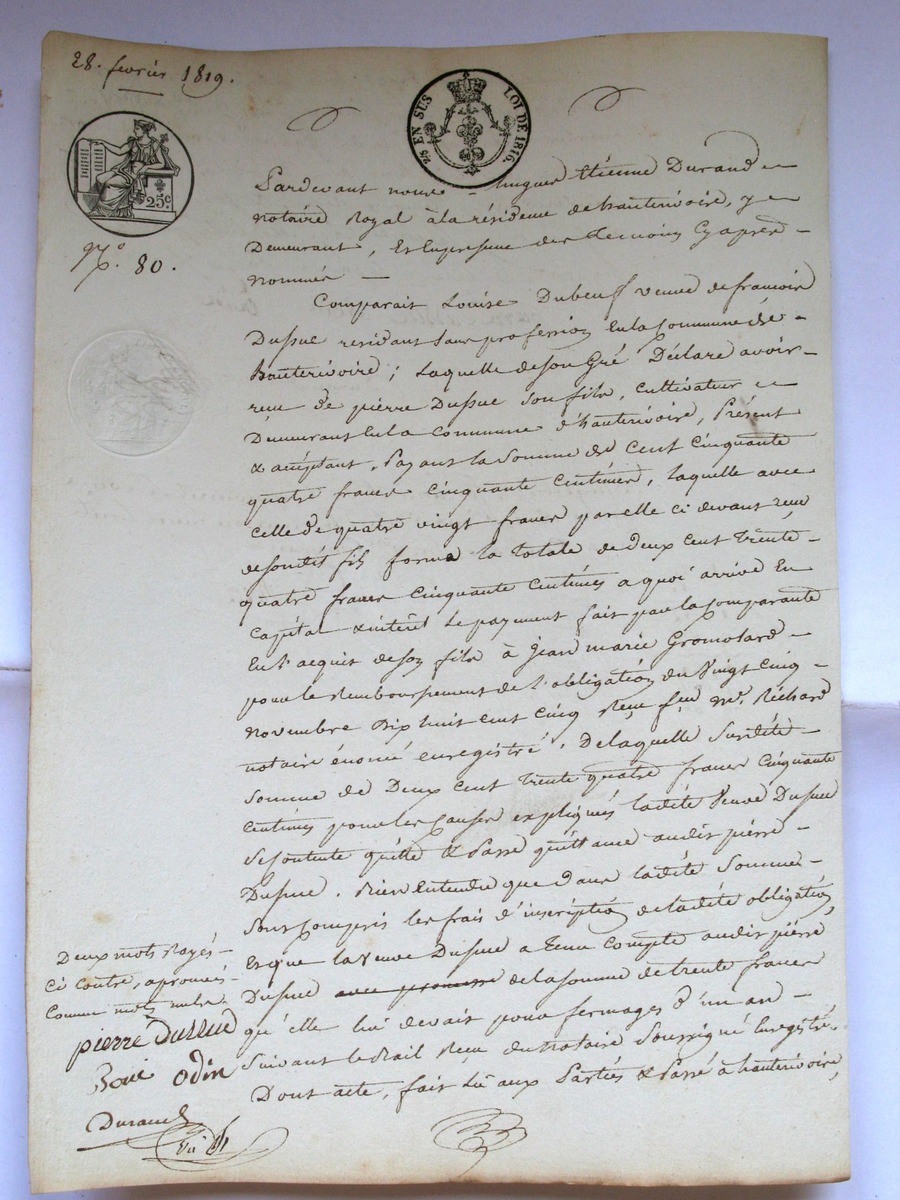 28. fevrier 1819.
2/5 EN SUS LOI DE 1816.
25c
N.º 80.
Pardevant nous hugues Étienne Durand
notaire Royal à la résidence de hauterivoire, y
Demeurant, Et En presence des temoins Cy après
nommés
Comparait Louise Dubeuf veuve de francois
Dussuc résidant sans profession En la Commune de
hauterivoire; Laquelle de son Gré Déclare avoir
reçu de pierre Dussuc son fils, Cultivateur
Demeurant En la Commune d'hauterivoire, Présent
& acceptant, payant la Somme de Cent Cinquante
quatre francs Cinquante Centimes, laquelle avec
celle de quatre vingt francs par elle ci devant reçu
de sondit fils forme la totale de deux Cent Trente
quatre francs Cinquante Centimes a quoi arrive En
Capital & intérêt le payment fait par la Comparante
En l'acquit de son fils à Jean marie Gromolard
pour le Remboursement de l'obligation du Vingt Cinq
novembre Dix huit Cent Cinq Reçu feu Me. Richard
notaire énoncé enregistré. De laquelle Susdite
Somme de Deux Cent Trente quatre francs Cinquante
Centimes pour les Causes expliqués ladite Veuve Dussuc
Se Contente quitte & Passe quittance audit pierre
Dussuc. Bien Entendu que dans ladite Somme
Sont Compris les frais d'inscription de ladite obligation,
Et que la Veuve Dussuc a Tenu Compte audit pierre
Dussuc avec promesse de la somme de trente francs
qu'elle lui devait pour fermages d'un an
Suivant le Bail Reçu du Notaire Soussigné Enregistré.
Dont acte, fait Lu aux Parties & Passé à hauterivoire,
Deux mots Rayés
Ci Contre, aprouvés
Comme mots nuls.
pierre Dussud
odin
Durand